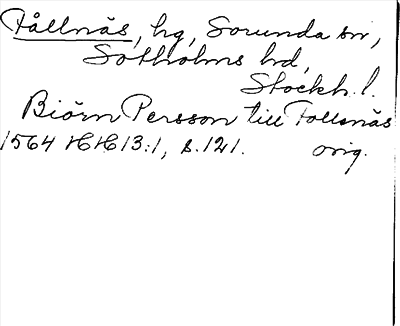 Fållnäs, hg, Sorunda sn,
Sotholms hd,
Stockh. l.
Biörn Persson till Follsnäs
1564 HH 13:1, s. 121. orig.